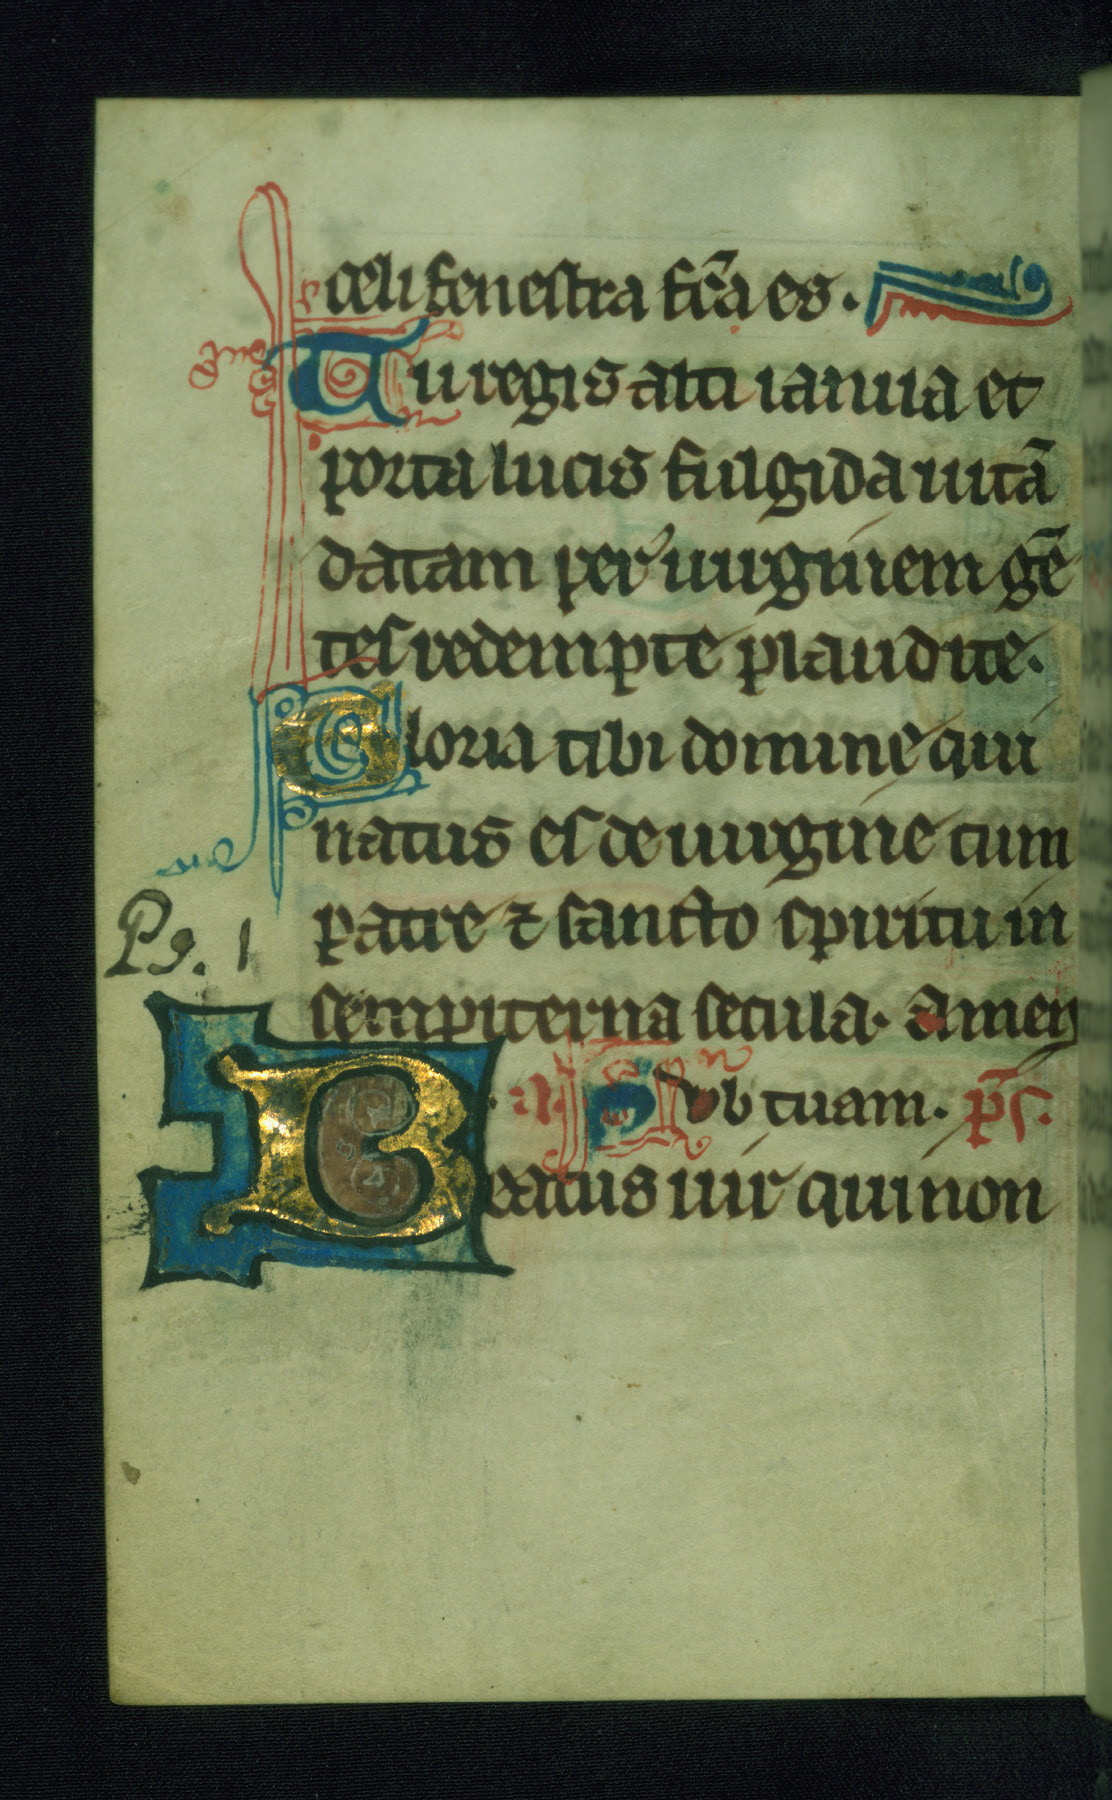 celi fenestra fc̄a es.
Tu regis alti ianua et
porta lucis fulgida uitā
datam per uirginem gē
tes redempte plaudite.
Gloria tibi domine qui
natus es de uirgine cum
patre ⁊ sancto spiritu in
sempiterna secula. Amen
Ps. 1
a. Sub tuam. p̄s.
Beatus uir qui non